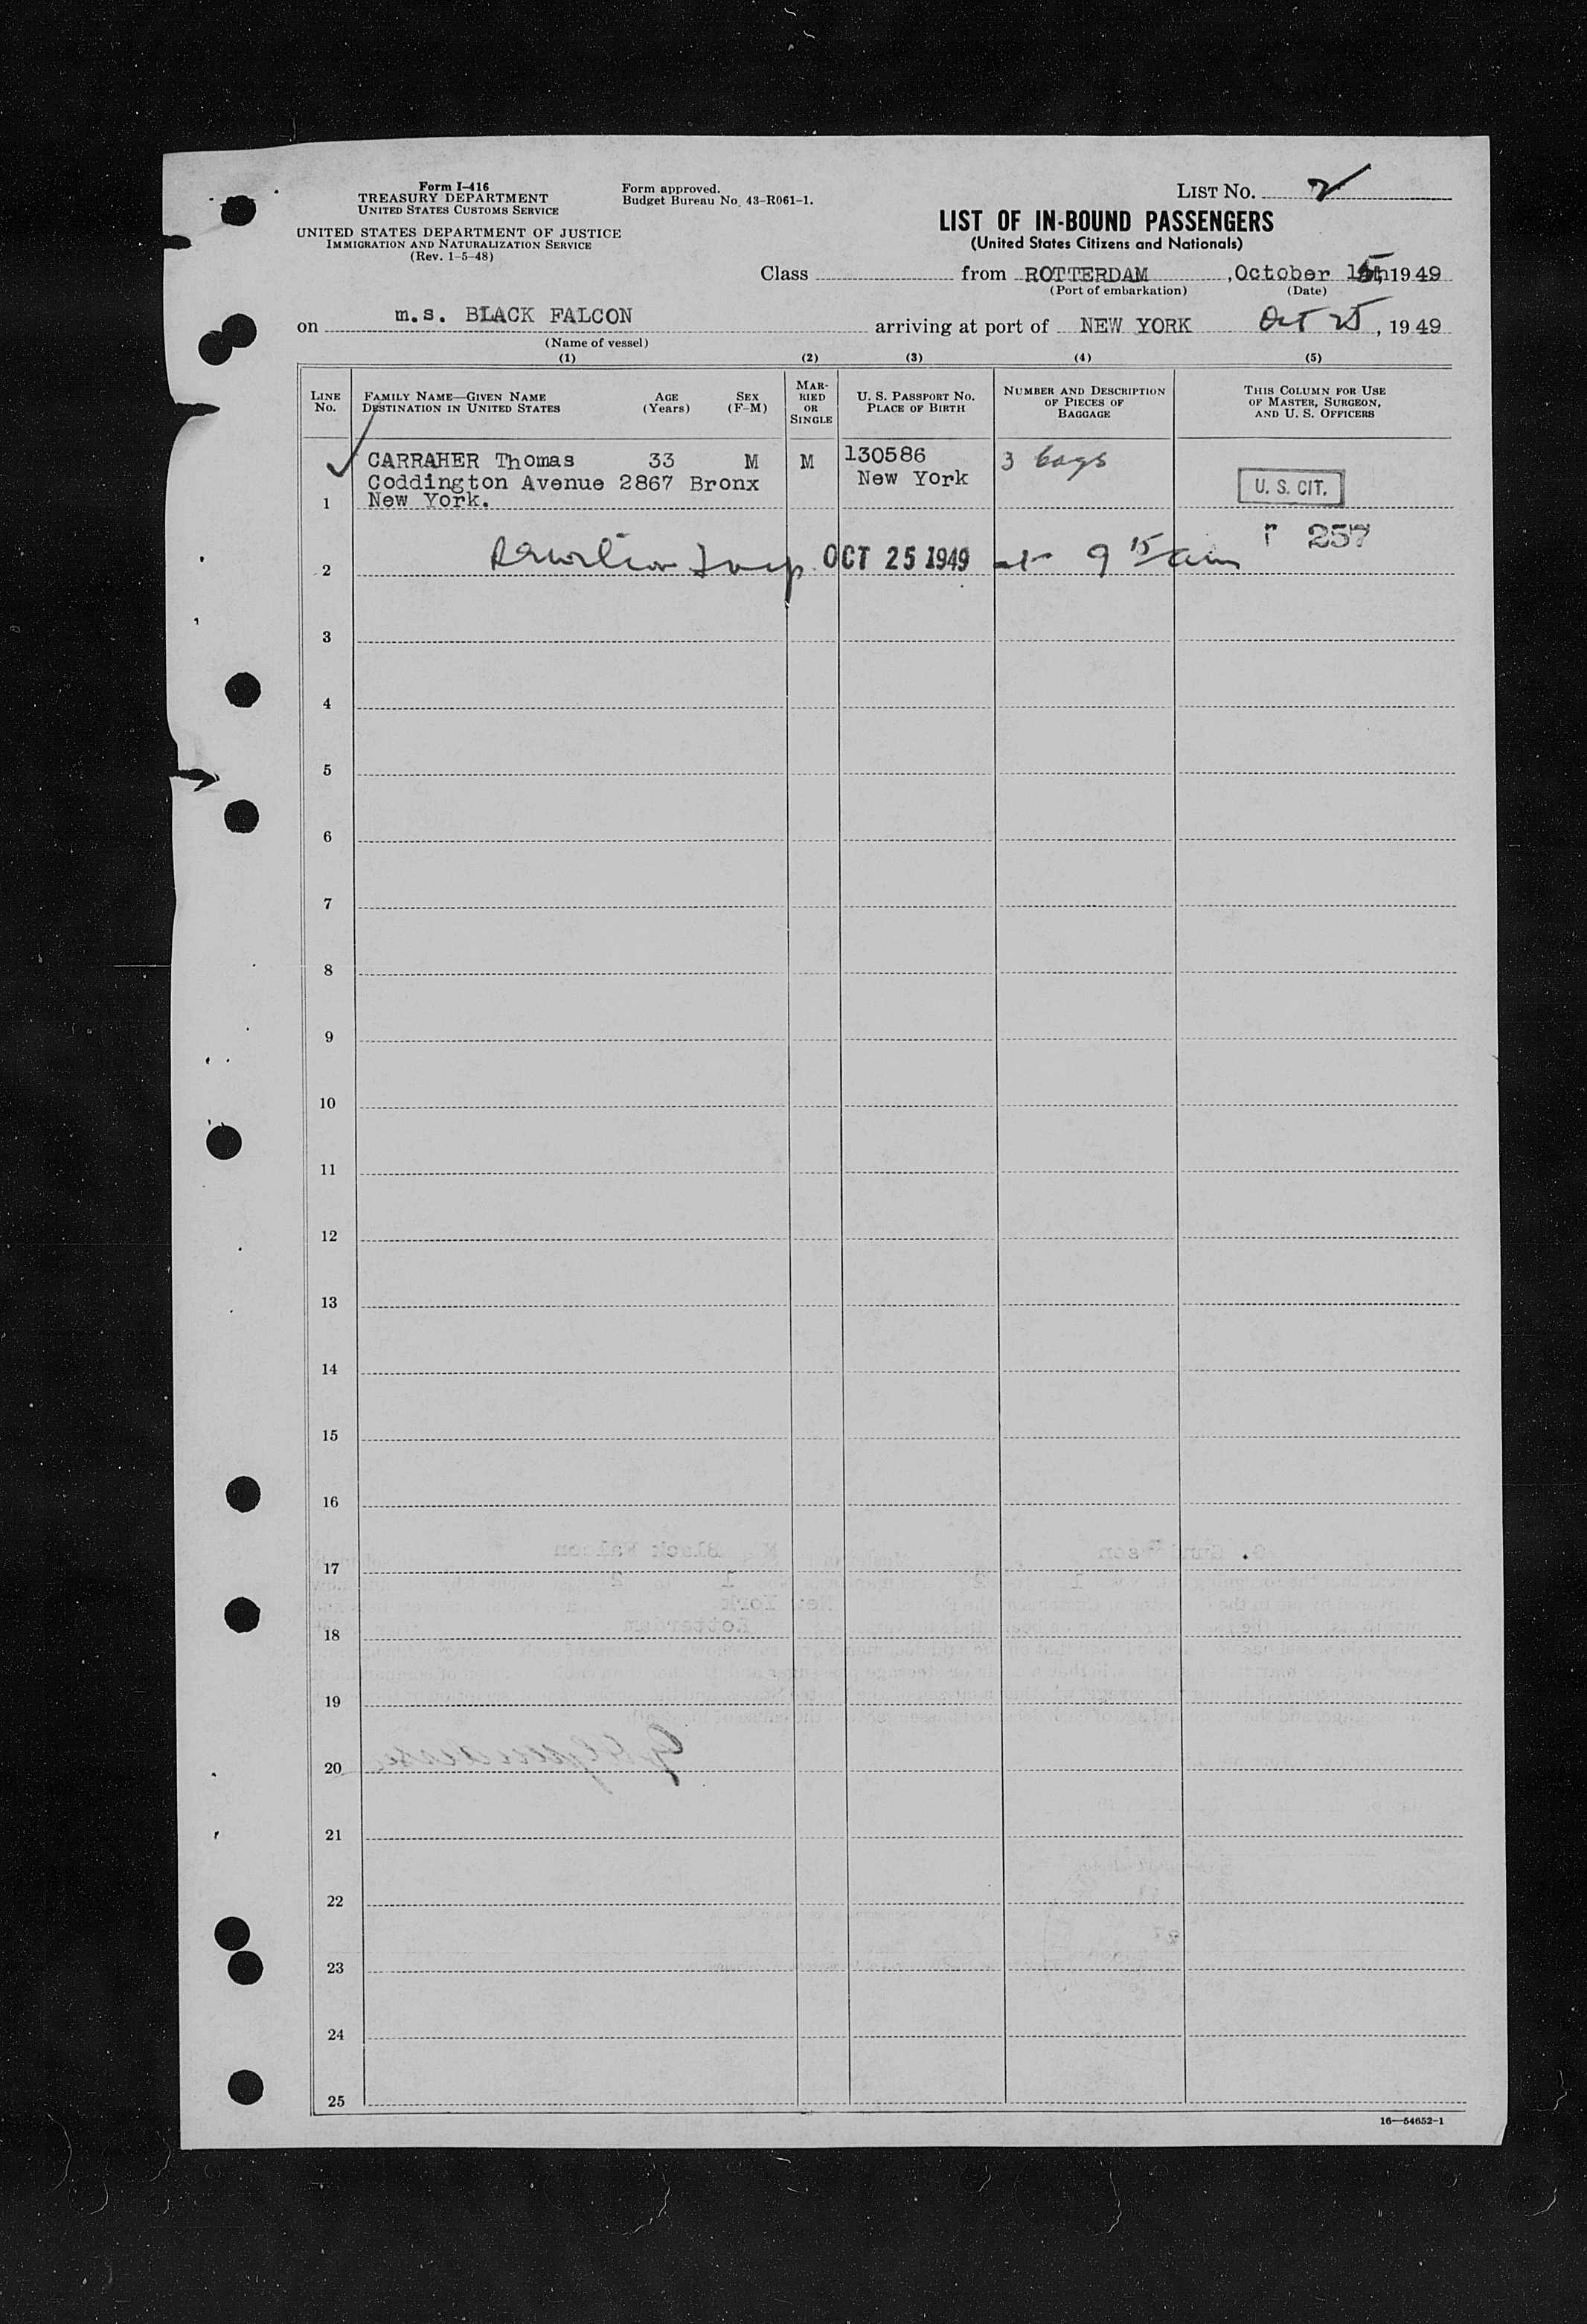 Form I-416
TREASURY DEPARTMENT
UNITED STATES CUSTOMS SERVICE
UNITED STATES DEPARTMENT OF JUSTICE
IMMIGRATION AND NATURALIZATION SERVICE
(Rev. 1-5-48)
Form approved.
Budget Bureau No. 43-R061-1.
LIST NO. 2
LIST OF IN-BOUND PASSENGERS
(United States Citizens and Nationals)
Class from ROTTERDAM, October 1949
(Port of embarkation) (Date)
on m.s. BLACK FALCON arriving at port of NEW YORK Oct 25, 1949
(Name of vessel)
(1) (2) (3) (4) (5)
LINE NO.
FAMILY NAME—GIVEN NAME
DESTINATION IN UNITED STATES
AGE (Years)
SEX (F-M)
MARRIED OR SINGLE
U. S. PASSPORT NO.
PLACE OF BIRTH
NUMBER AND DESCRIPTION OF PIECES OF BAGGAGE
THIS COLUMN FOR USE OF MASTER, SURGEON, AND U. S. OFFICERS
CARRAHER Thomas 33 M M 130586 3 bags
Coddington Avenue 2867 Bronx New York U. S. CIT.
1 New York.
257
2 OCT 25 1949 at 9 15 am
3
4
5
6
7
8
9
10
11
12
13
14
15
16
17
18
19
20
21
22
23
24
25
16—54652-1